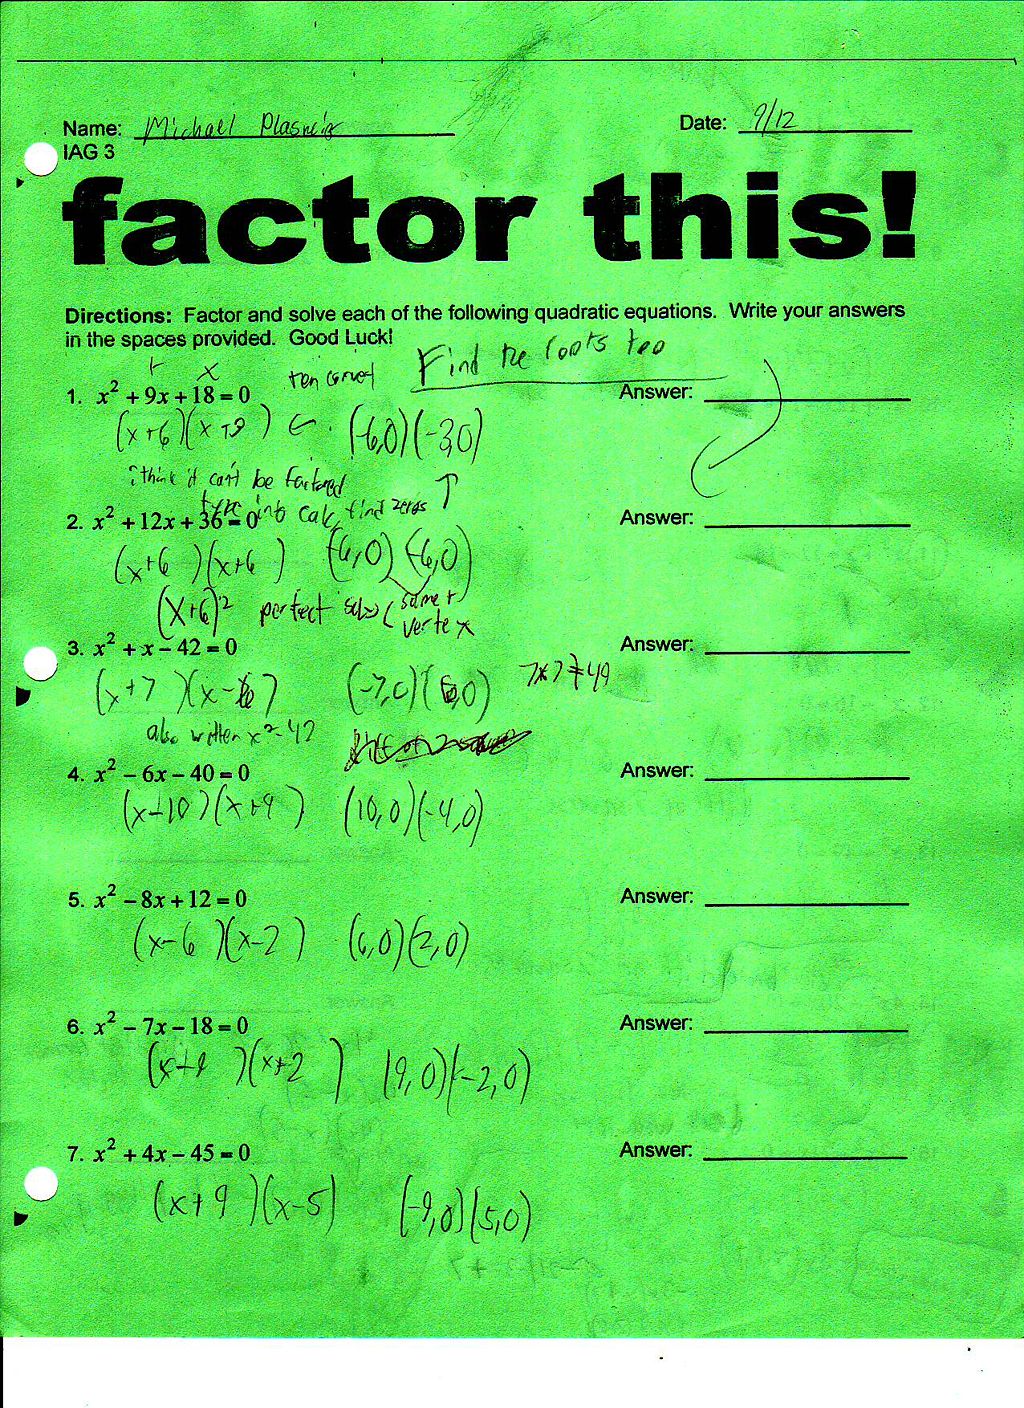 Name: Michael Plasneig Date: 9/12
IAG 3
factor this!
Directions: Factor and solve each of the following quadratic equations. Write your answers
in the spaces provided. Good Luck!
Find the roots too
+ x
1. x² + 9x + 18 = 0 Answer:
(x+6)(x+3) ← (-6,0)(-3,0)
i think it can't be factored ↑
type into calc, find zeros
2. x² + 12x + 36 = 0 Answer:
(x+6)(x+6) (-6,0)(-6,0)
(x+6)² perfect same
vertex
3. x² + x − 42 = 0 Answer:
(x+7)(x-6) (-7,0)(6,0) 7x7≠49
also written x²-42
4. x² − 6x − 40 = 0 Answer:
(x-10)(x+4) (10,0)(-4,0)
5. x² − 8x + 12 = 0 Answer:
(x-6)(x-2) (6,0)(2,0)
6. x² − 7x − 18 = 0 Answer:
(x-9)(x+2) (9,0)(-2,0)
7. x² + 4x − 45 = 0 Answer:
(x+9)(x-5) (-9,0)(5,0)